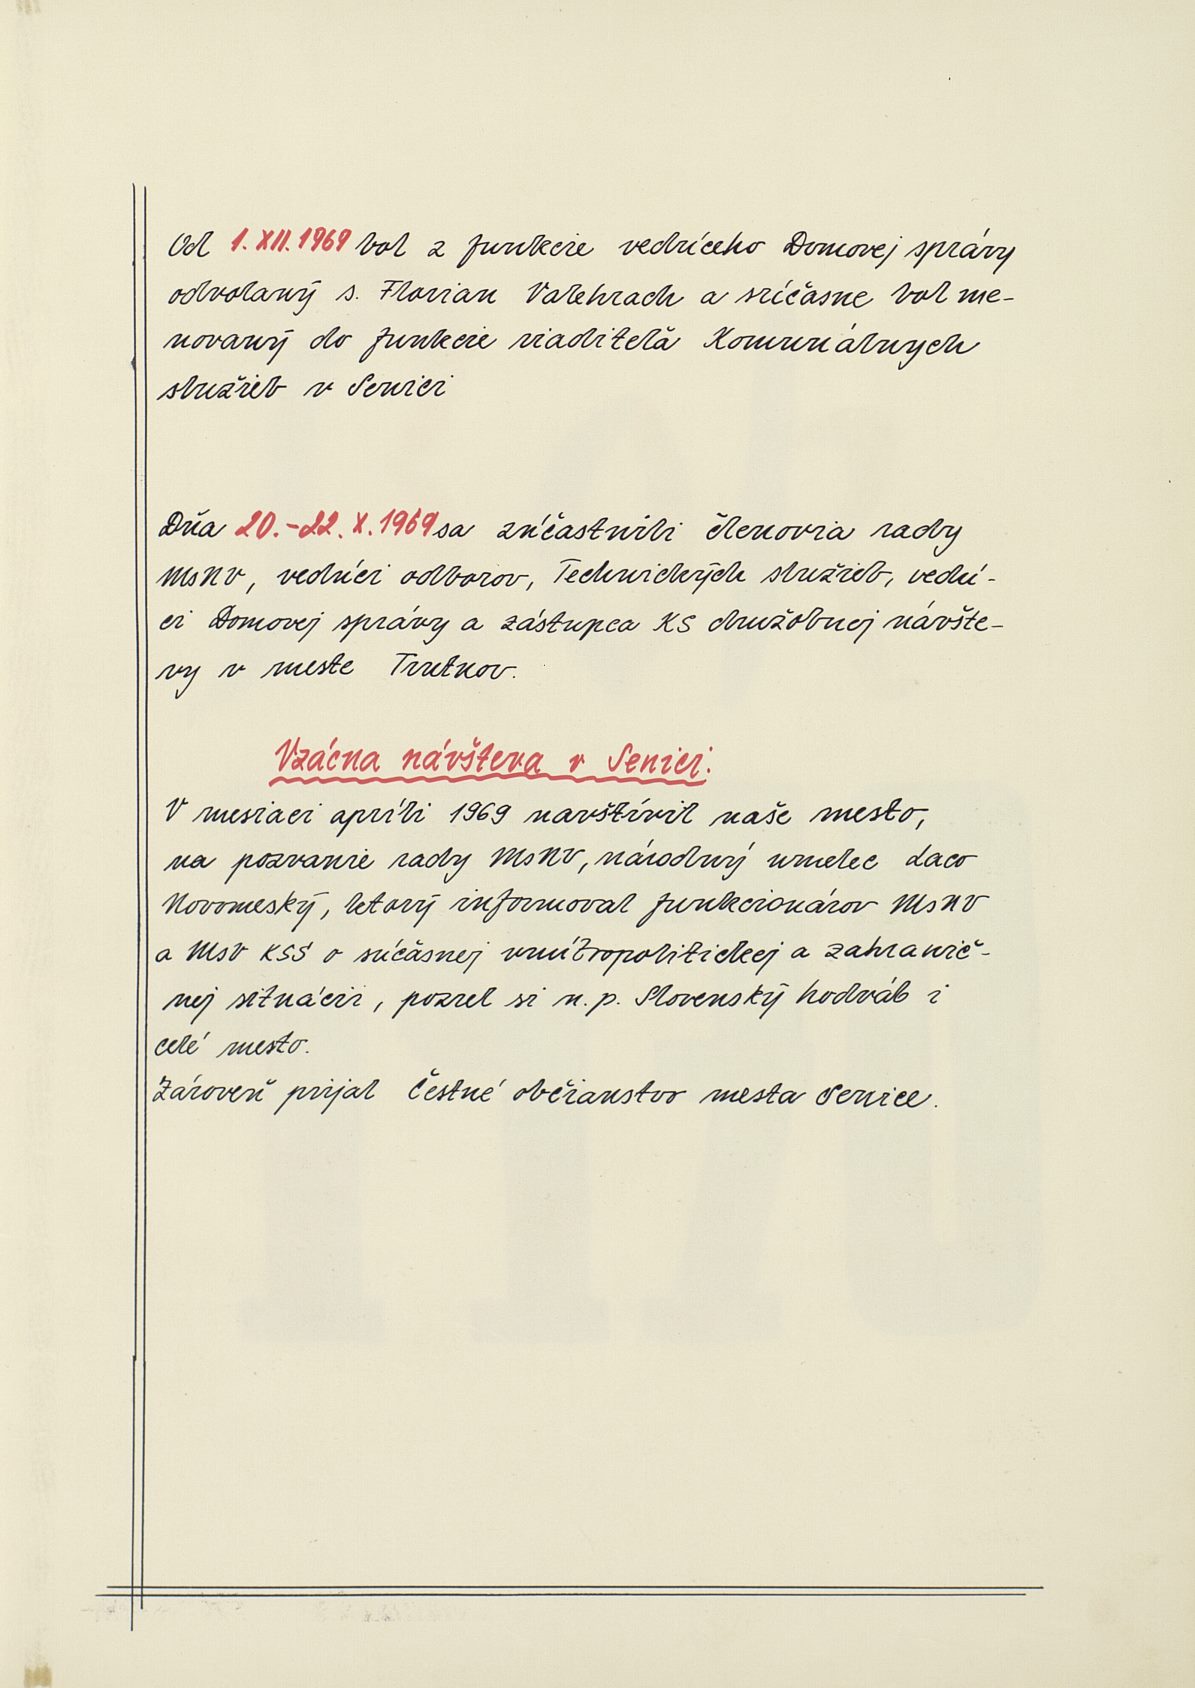 Od 1. XII. 1969 bol z funkcie vedúceho Domovej správy
odvolaný s. Florian Valehrach a súčasne bol me-
novaný do funkcie riaditeľa Komunálnych
služieb v Senici
Dňa 20.-22. X. 1969 sa zúčastnili členovia rady
MsNV, vedúci odborov, Technických služieb, vedú-
ci Domovej správy a zástupca KS družobnej návšte-
vy v meste Trutnov.
Vzácna návšteva v Senici.
V mesiaci apríli 1969 navštívil naše mesto,
na pozvanie rady MsNV, národný umelec Laco
Novomeský, ktorý informoval funkcionárov MsNV
a MsV KSS o súčasnej vnútropolitickej a zahranič-
nej situácii, pozrel si n.p. Slovenský hodváb i
celé mesto.
Zároveň prijal Čestné občianstvo mesta Senice.